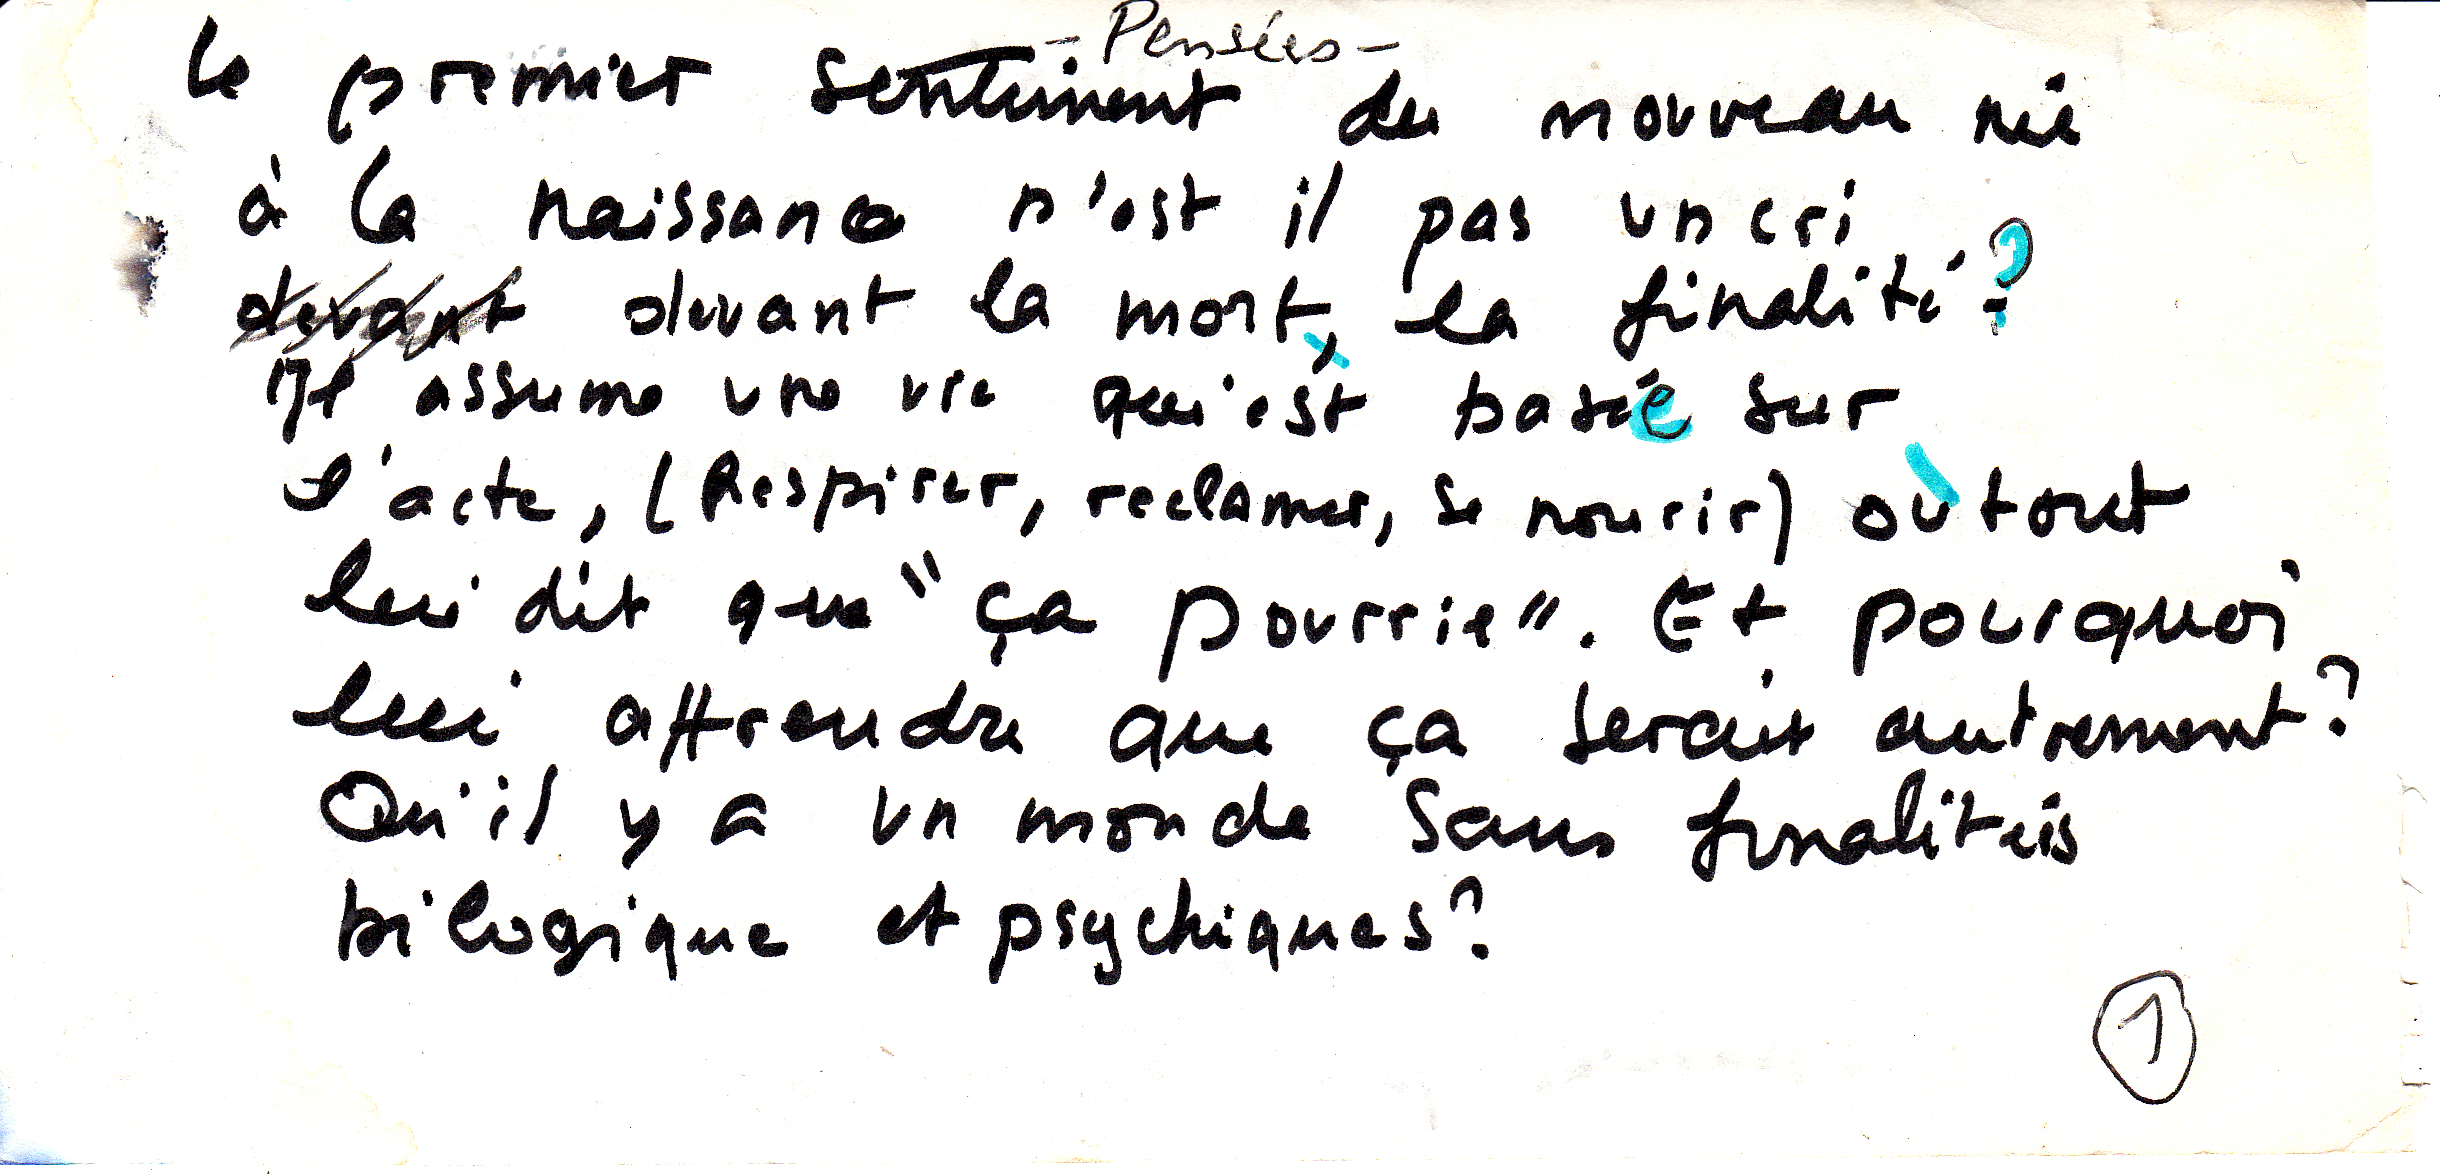 - Pensées -
Le premier sentiment du nouveau né
à la naissance n'est il pas un cri
devant devant la mort, la finalité ?
Il assume une vie qui est basée sur
l'acte, (Respirer, reclamer, se nourir) où tout
lui dit que "ça pourrie". Et pourquoi
lui apprendre que ça serait autrement ?
Qu'il y a un monde sans finalités
bilogique et psychiques ?
1